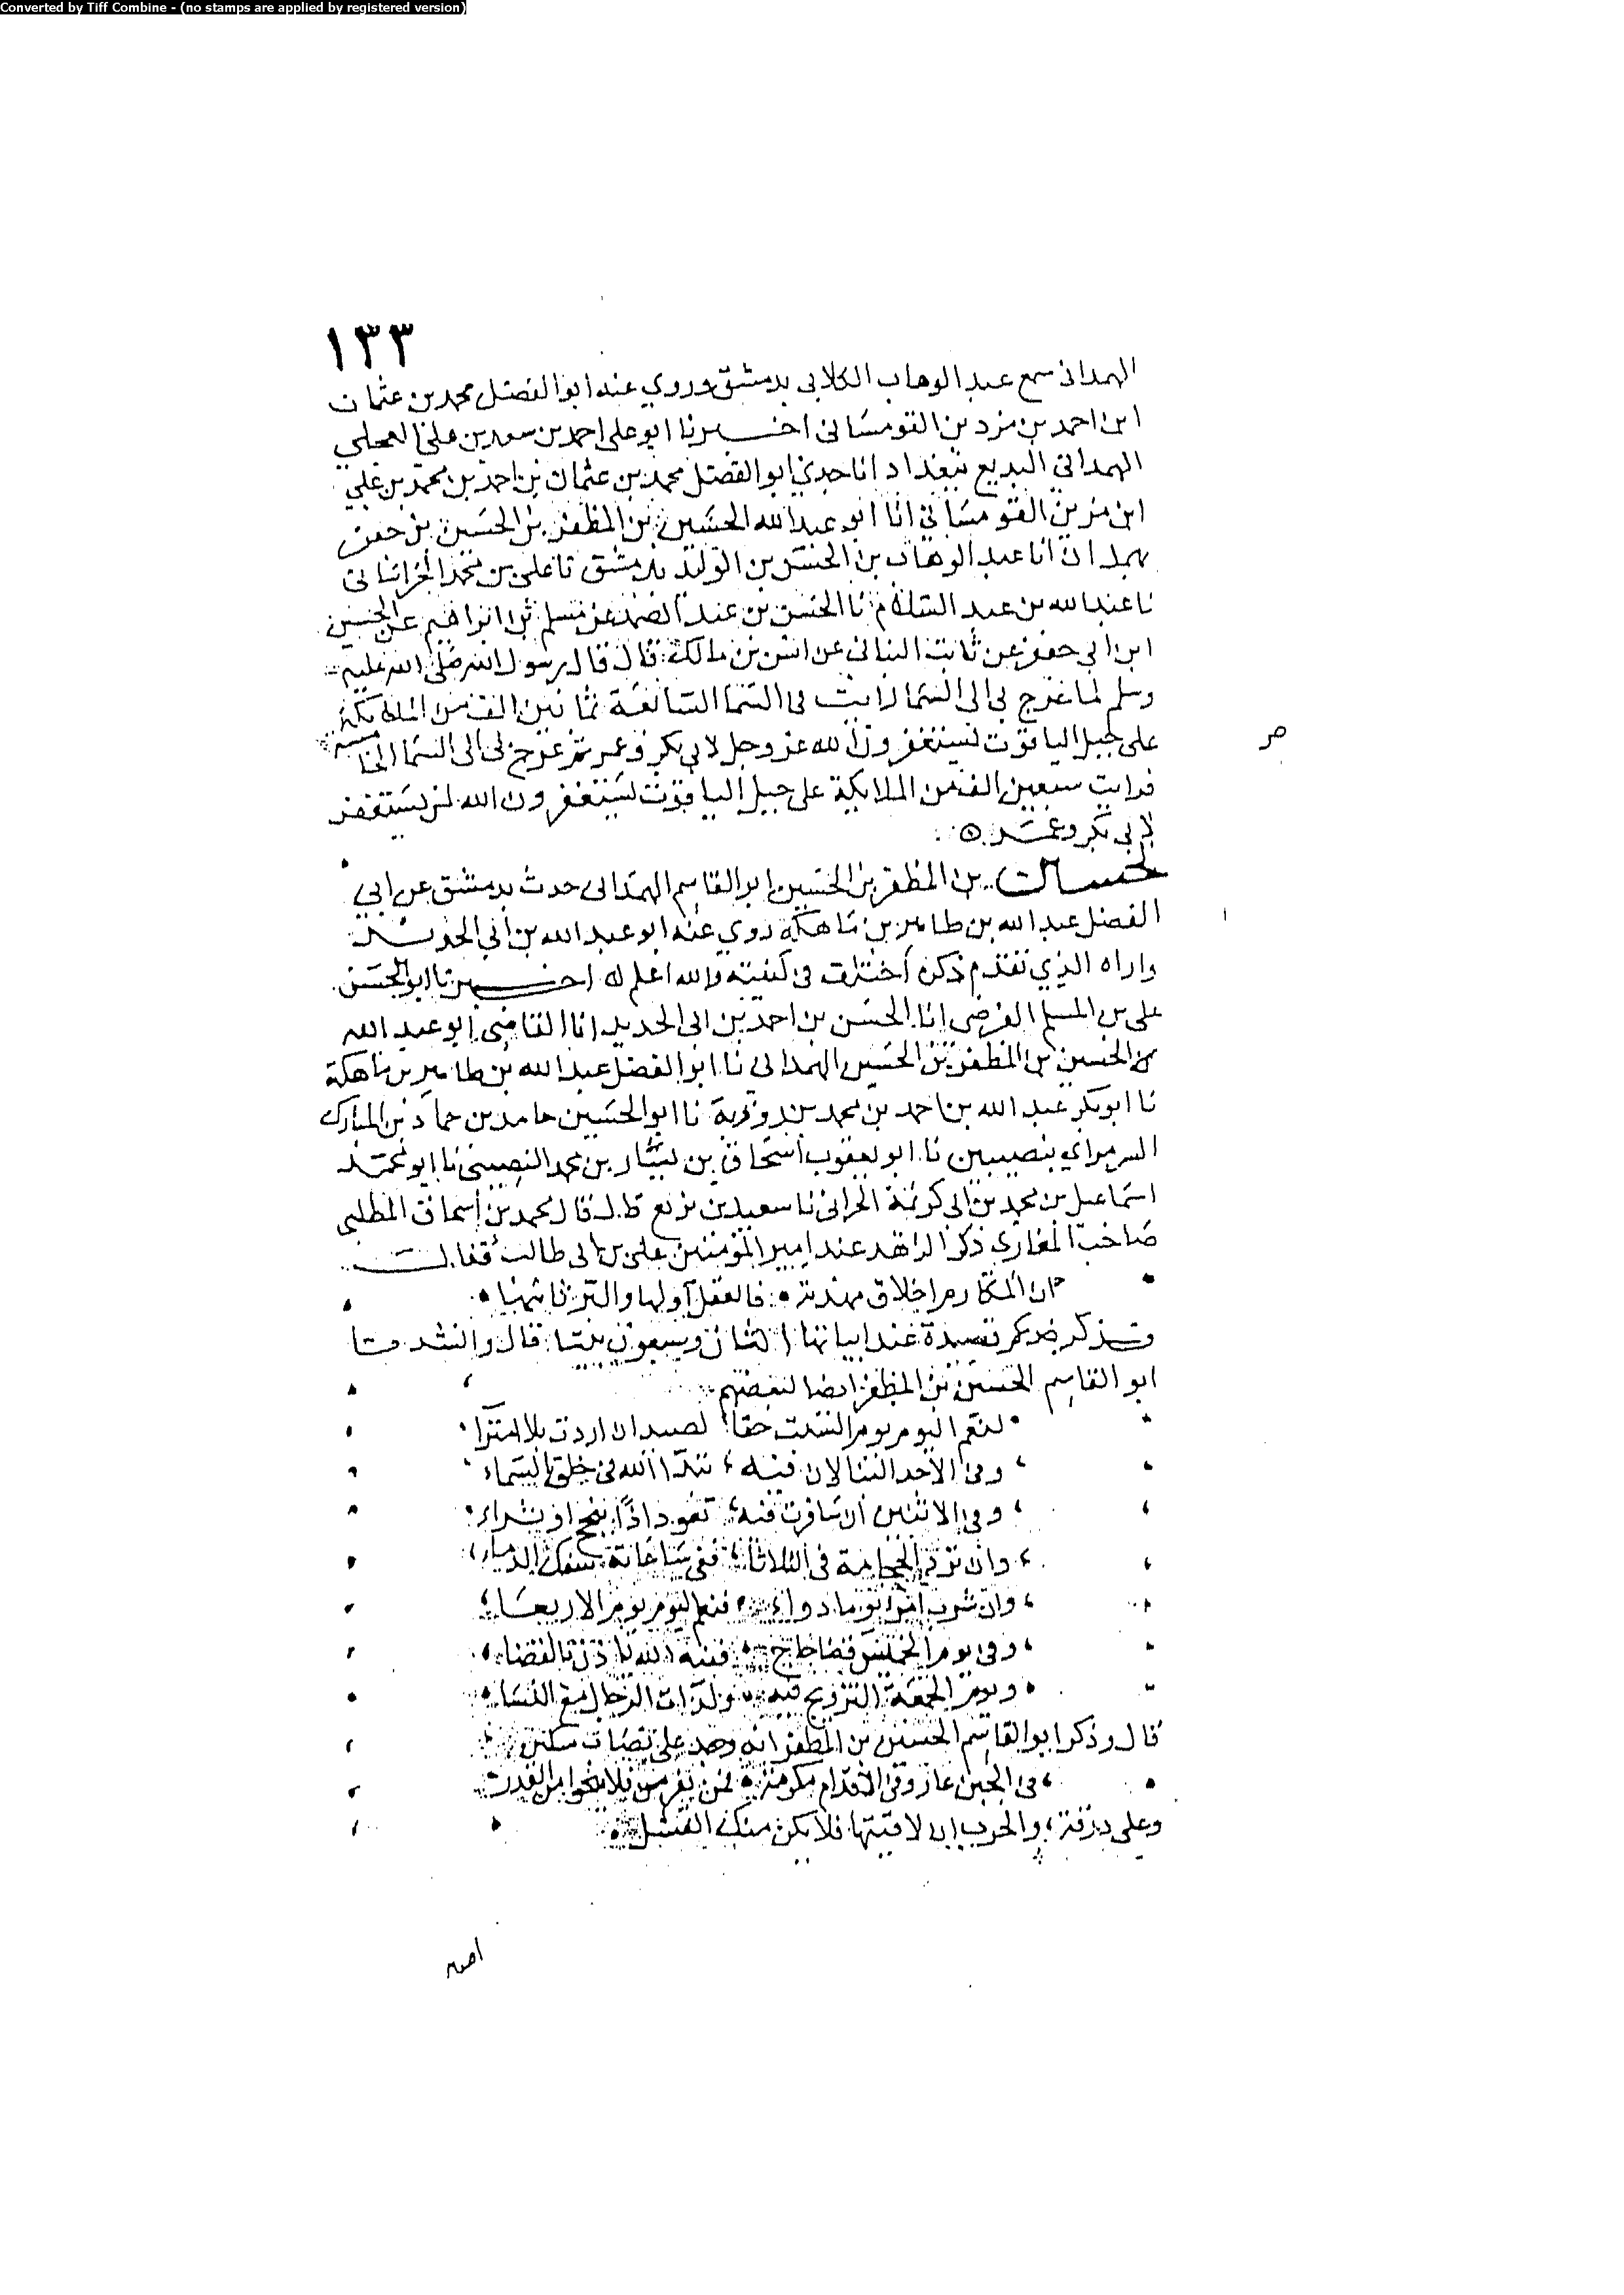 Converted by Tiff Combine - (no stamps are applied by registered version)
١٣٣
الهمداني سمع عبد الوهاب الكلابي بدمشق وروي عنه ابو الفضل محمد بن عثمان
ابن احمد بن مزدين القومساني اخبرنا ابو علي احمد بن سعد بن علي العجلي
الهمداني البديع ببغداد انا جدي ابو الفضل محمد بن عثمان بن احمد بن محمد بن علي
ابن مزدين القومساني انا ابو عبد الله الحسين بن المظفر بن الحسين بن جعفر
بهمدان انا عبد الوهاب بن الحسن بن الوليد بدمشق نا علي بن محمد الخراساني
نا عبد الله بن عبد السلام نا الحسن بن عبد الصمد عن مسلم بن ابراهيم عن الحسين
ابن ابي جعفر عن ثابت البناني عن انس بن مالك قال قال رسول الله صلى الله عليه
وسلم لما عرج بي الى السما رايت في السما السابعة ثمانين الف من الملايكة
على جبل الياقوت يستغفرون الله عز وجل لابي بكر وعمر ثم عرج بي الى السما الخامسة
فرايت سبعين الف من الملايكة على جبل الياقوت يستغفرون الله لمن يستغفر
لابي بكر وعمر
بن المظفر بن الحسين ابو القاسم الهمداني حدث بدمشق عن ابي
الفضل عبد الله بن طاهر بن ماهكة روي عنه ابو عبد الله بن ابي الحديد
واراه الذي تقدم ذكره اختلف في كنيته والله اعلم اخبرنا ابو الحسن
علي بن المسلم الفرضي انا الحسن بن احمد بن ابي الحديد انا القاضي ابو عبد الله
الحسين بن المظفر بن الحسين الهمداني نا ابو الفضل عبد الله بن طاهر بن ماهكة
نا ابو بكر عبد الله بن احمد بن محمد بن روزبة نا ابو الحسين حامد بن حماد بن المبارك
السرمراي بنصيبين نا ابو يعقوب اسحاق بن يسار بن محمد النصيبي نا ابو محمد
اسماعيل بن محمد بن ابي كريمة الحراني نا سعيد بن بزيع قال قال محمد بن اسحاق المطلبي
صاحب المغازي ذكر الزهد عند امير المؤمنين علي بن ابي طالب فقالت
ان المكارم اخلاق مهذبة فالعقل اولها والبر ثانيها
قصيدة عند ابياتها اثنان وسبعون بيتا قال وانشدنا
ابو القاسم الحسين بن المظفر ايضا لبعضهم
لنعم اليوم يوم السبت حقا لصيد ان اردت بلا امترا
وفي الاحد البنا لان فيه تبدا الله في خلق السماء
وفي الاثنين ان سافرت فيه تعود اذا بنجح او بثراء
وان ترد الحجامة في الثلاثا ففي ساعاته سفك الدماء
وان شرب امرء يوما دواء فنعم اليوم يوم الاربعاء
وفي يوم الخميس قضا حاج ففيه الله ياذن بالقضاء
ويوم الجمعة التزويج فيه ولذات الرجال مع النساء
قال وذكر ابو القاسم الحسين بن المظفر انه وجد على نصاب سكين
في الجبن عار وفي الاقدام مكرمة فمن يفر فلا ينجوا من القدر
وعلى درقة والحرب ان لاقيتها فلا يكن منك الفشل